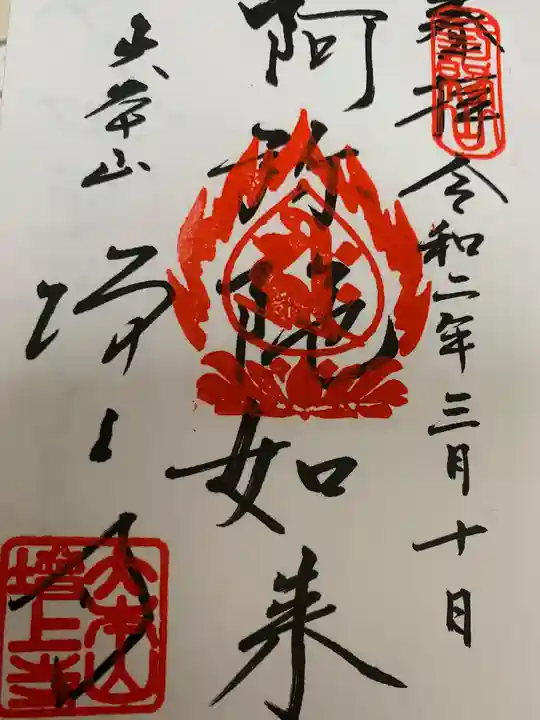 奉拝
令和二年三月十日
阿弥陀如来
大本山
増上寺
大本山
増上寺